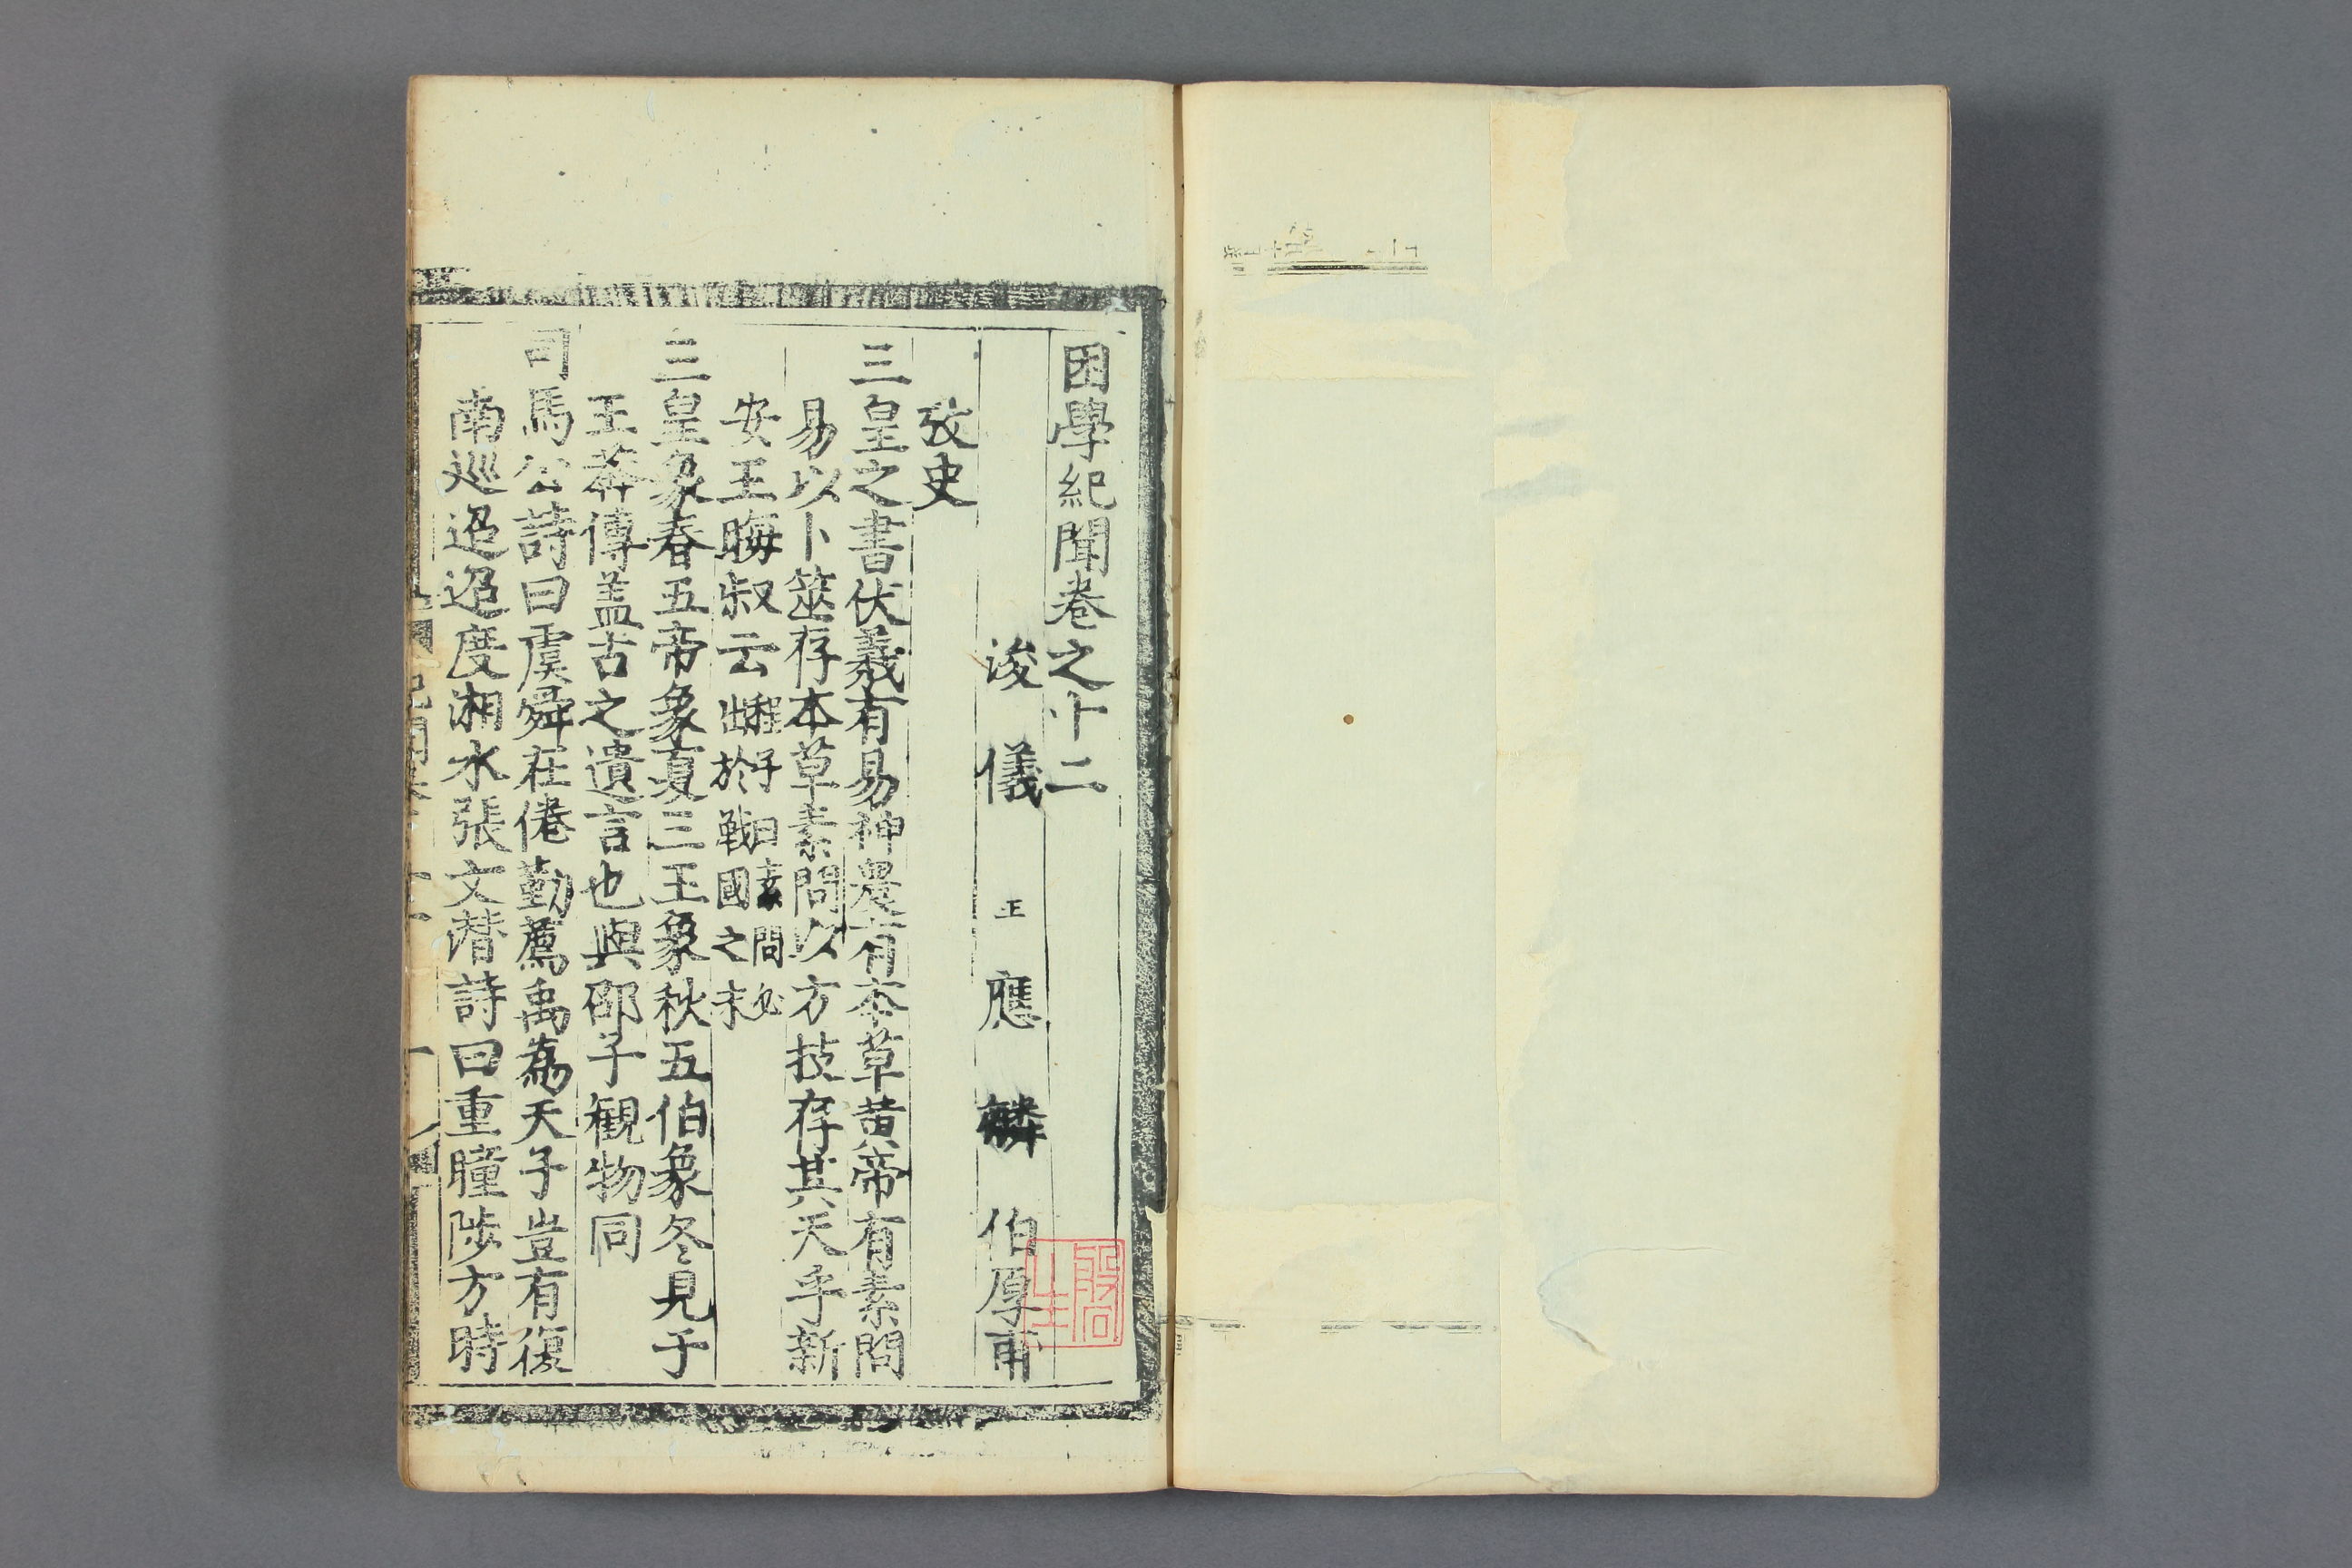 困學紀聞卷之十二
浚儀 王應麟 伯厚甫
攷史
三皇之書伏羲有易神農有本草黃帝有素問
易以卜筮存本草素問以方技存其天乎新
安王晦叔云程子曰素問必出於戰國之末
三皇象春五帝象夏三王象秋五伯象冬見于
王莽傳盖古之遺言也與邵子觀物同
司馬公詩曰虞舜在倦勤薦禹為天子豈有復
南巡迢迢度湘水張文潛詩曰重瞳陟方時